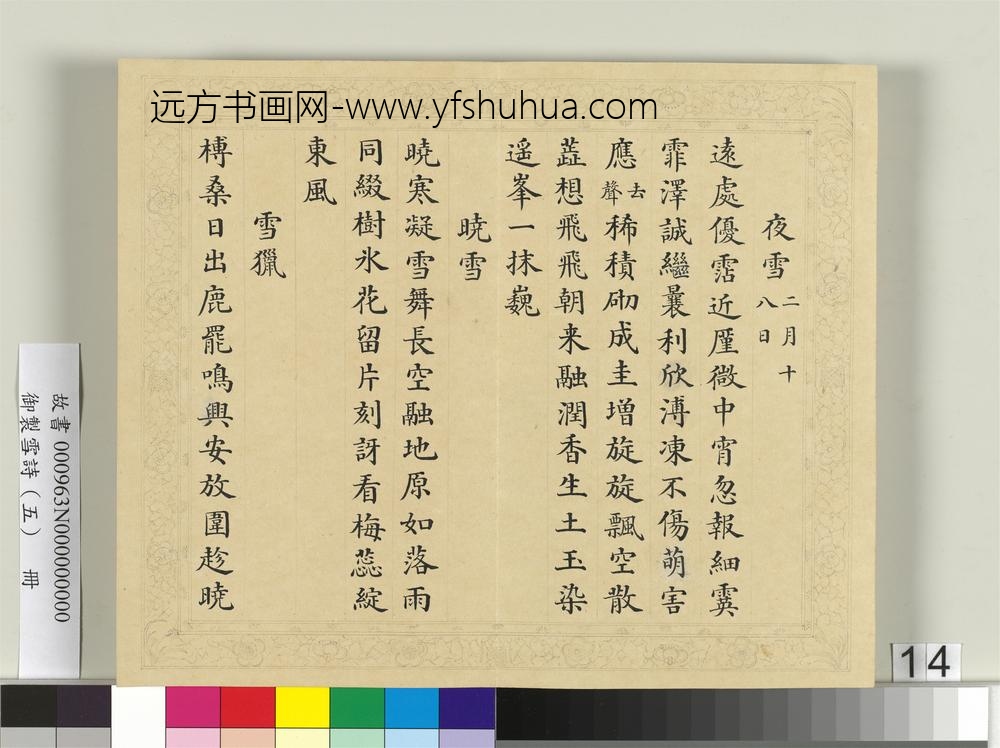 远方书画网-www.yfshuhua.com
夜雪 二月十八日
遠處優霑近厪微中宵忽報細霙
霏澤誠繼曩利欣溥凍不傷萌害
應去聲稀積砌成圭增旋旋飄空散
蕋想飛飛朝来融潤香生土玉染
遥峯一抹巍
曉雪
曉寒凝雪舞長空融地原如落雨
同綴樹氷花留片刻訝看梅蕊綻
東風
雪獵
榑桑日出鹿罷鳴興安放圍趁曉
故書 000963N000000000
御製雪詩（五） 冊
14